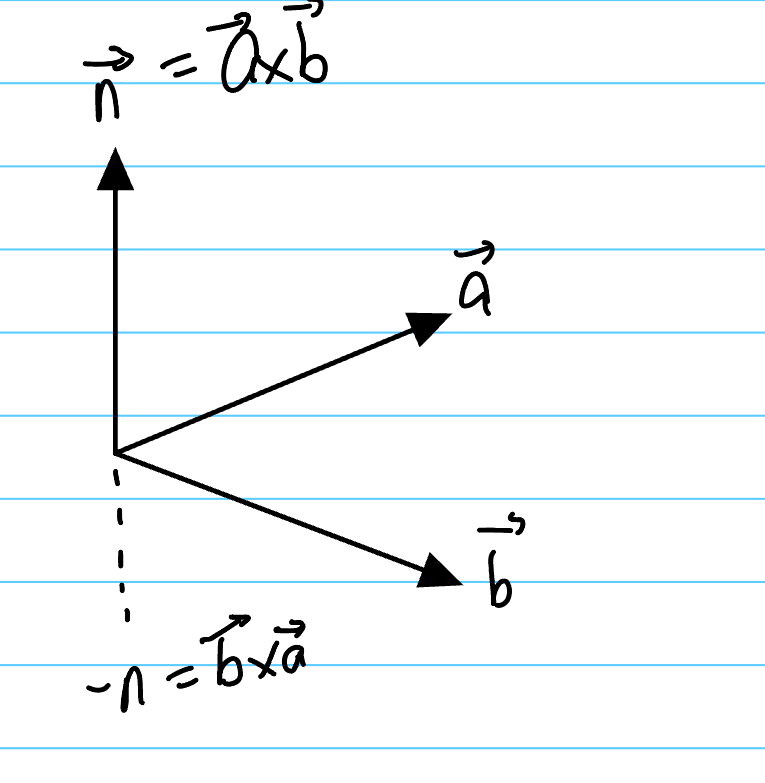 n⃗ = a⃗×b⃗
a⃗
b⃗
-n = b⃗×a⃗